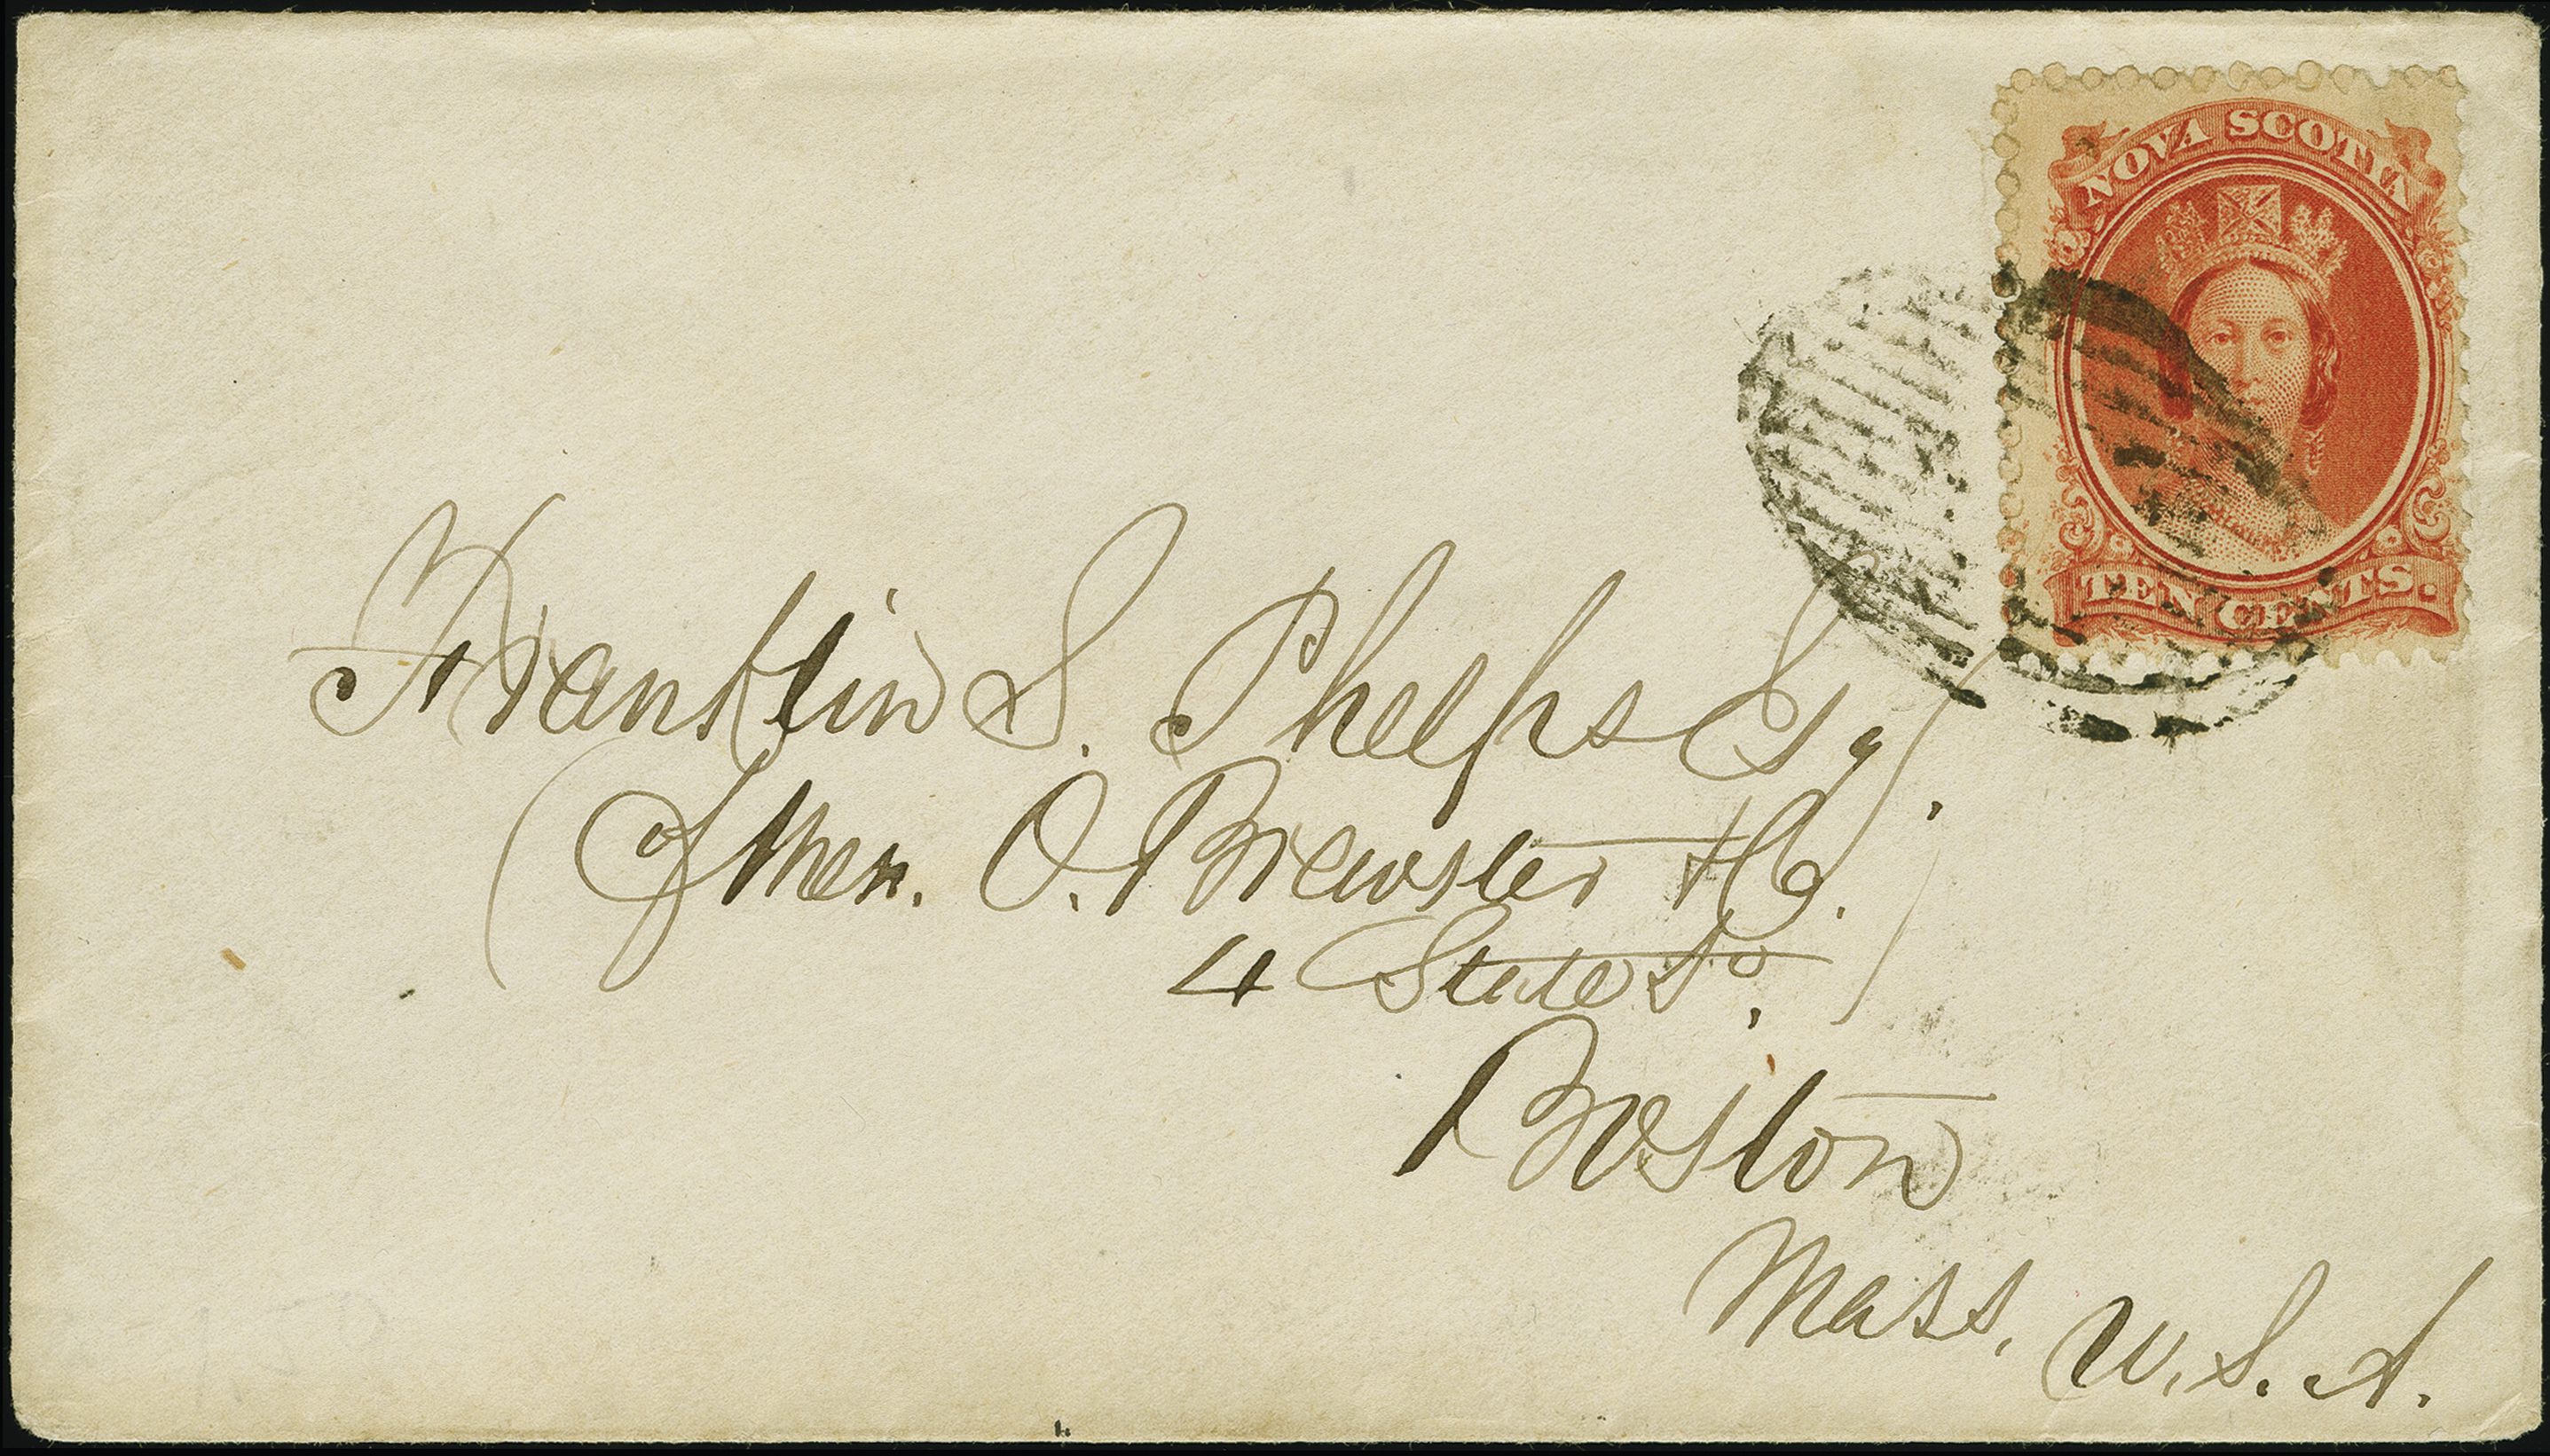 NOVA SCOTIA
TEN CENTS.
Franklin S. Phelps Esq.
(Of O. Brewster & Co.
4 State St.)
Boston
Mass, U.S.A.